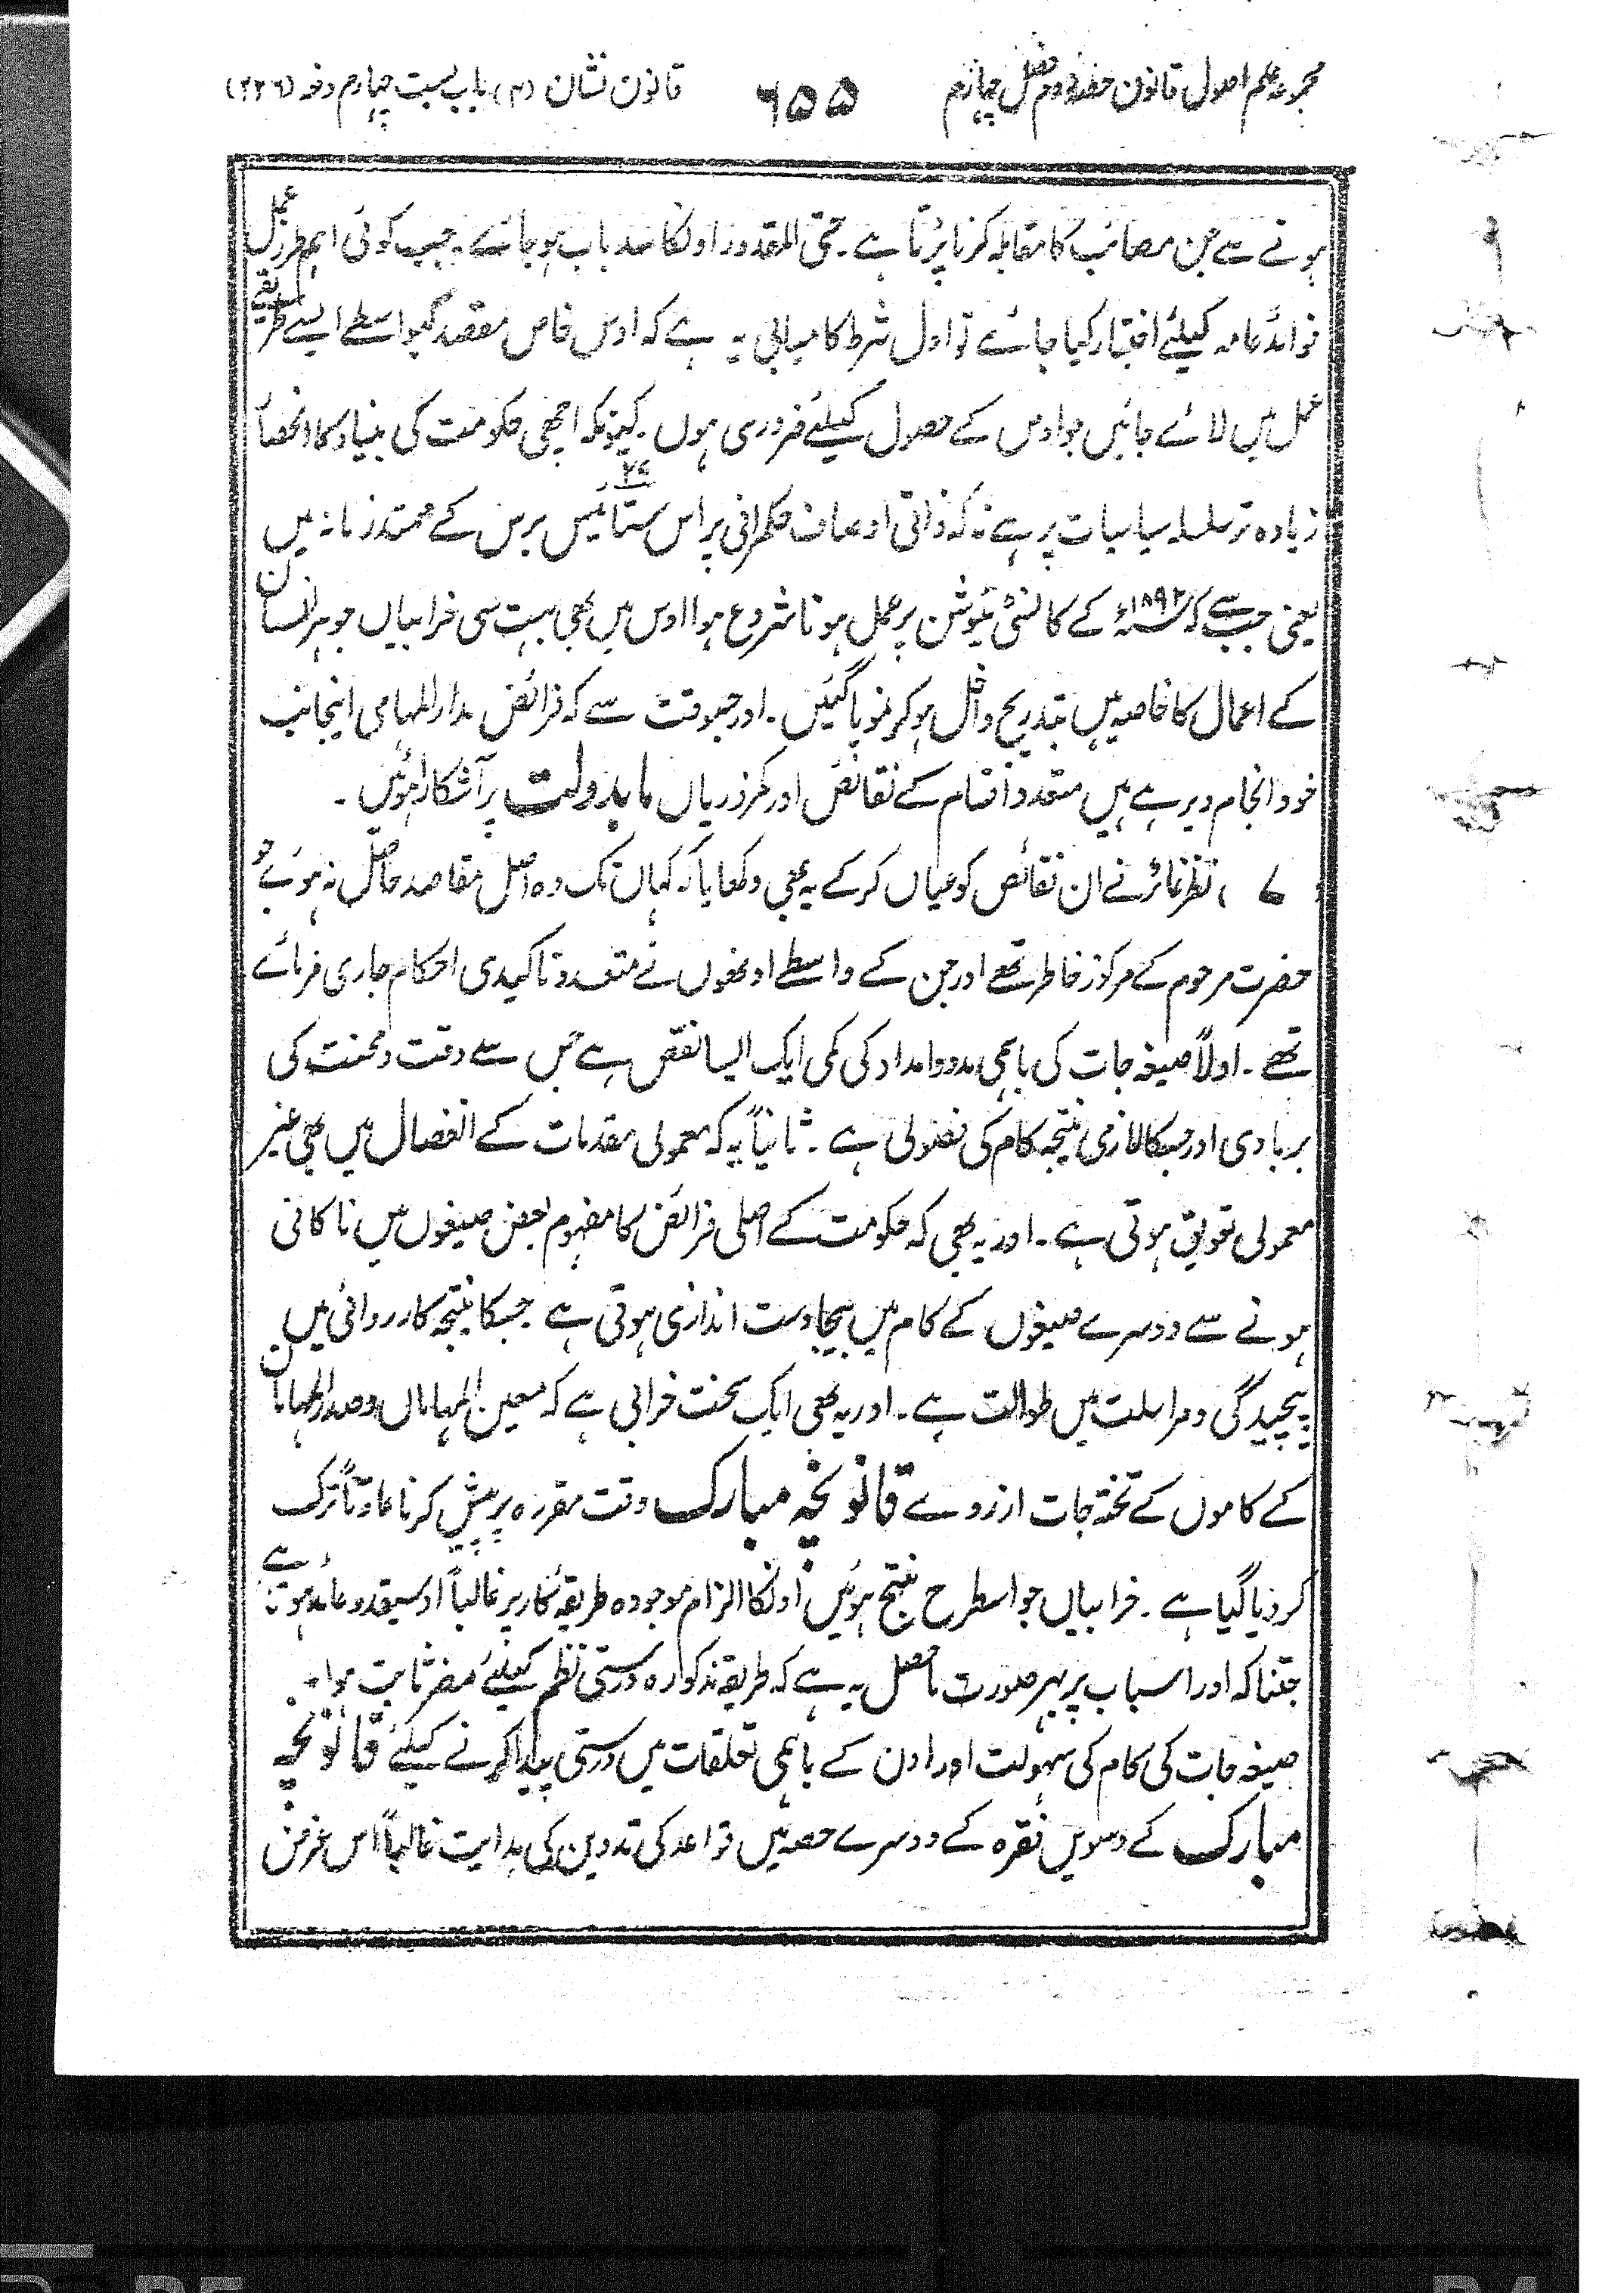 مجموعہ علم اصول قانون حصہ دوم فصل چہارم ۶۵۵ قانون نشان (۳) باب بست چہارم دفعہ (۲۲۶)
ہونے سے جن مصائب کا مقابلہ کرنا پڑتا ہے ۔ حتی المقدور اونکا سد باب ہوجائے ۔ جب کوئی اہم طرز عمل
فوائد عامہ کیلئے اختیار کیا جائے تو اول شرط کامیابی یہ ہے کہ اوس خاص مقصد کیواسطے ایسے طریقے
عمل میں لائے جائیں جو اوس کے حصول کیلئے ضروری ہوں ۔ کیونکہ اچھی حکومت کی بنیاد کا انحصار
زیادہ تر سلسلہ سیاسیات پر ہے نہ کہ ذاتی اوصاف حکمرانی پر اس ستائیس ۲۷ برس کے ممتد زمانہ میں
یعنی جب سے کہ ۱۸۹۲ء کے کانسٹی ٹیوشن پر عمل ہونا شروع ہوا اوس میں بھی بہت سی خرابیاں جو ہر انسان
کے اعمال کا خاصہ ہیں بتدریج داخل ہوکر نمو پاگئیں ۔ اور جسوقت سے کہ فرائض مدارالمہامی اینجانب
خود انجام دیرہے ہیں متعدد اقسام کے نقائص اور کمزوریاں مابدولت پر آشکارا ہوئیں ۔
۷ ، نظر غائر نے ان نقائص کو عیاں کرکے یہ بھی دکھایا کہ کہاں تک وہ اصل مقاصد حاصل نہ ہوئے جو
حضرت مرحوم کے مرکوز خاطر تھے اور جن کے واسطے اونھوں نے متعدد تاکیدی احکام جاری فرمائے
تھے ۔ اولاً صیغہ جات کی باہمی مدد و امداد کی کمی ایک ایسا نقص ہے جس سے وقت و محنت کی
بربادی اور جسکا لازمی نتیجہ کام کی فضولی ہے ۔ ثانیاً یہ کہ معمولی مقدمات کے انفصال میں بھی غیر
معمولی تعویق ہوتی ہے ۔ اور یہ بھی کہ حکومت کے اصلی فرائض کا مفہوم بعض صیغوں میں ناکافی
ہونے سے دوسرے صیغوں کے کام میں بیجا دست اندازی ہوتی ہے جسکا نتیجہ کارروائی میں
پیچیدگی و مراسلت میں طوالت ہے ۔ اور یہ بھی ایک سخت خرابی ہے کہ معین المہاماں و صدرالمہاماں
کے کاموں کے تختہ جات ازروے قانونچہ مبارک وقت مقررہ پر پیش کرنا عادتاً ترک
کردیا گیا ہے ۔ خرابیاں جو اسطرح منتج ہوئیں اونکا الزام موجودہ طریقہ کار پر غالباً اوسیقدر عائد ہوتا ہے
جتنا کہ اور اسباب پر بہر صورت ماحصل یہ ہے کہ طریقہ مذکورہ درستی نظم کیلئے مضر ثابت ہوا ۔
صیغہ جات کی کام کی سہولت اور اون کے باہمی تعلقات میں درستی پیدا کرنے کیلئے قانونچہ
مبارک کے دسویں فقرہ کے دوسرے حصہ میں قواعد کی تدوین کی ہدایت غالباً اس غرض